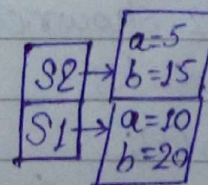 S2 → a=5
b=15
S1 → a=10
b=20